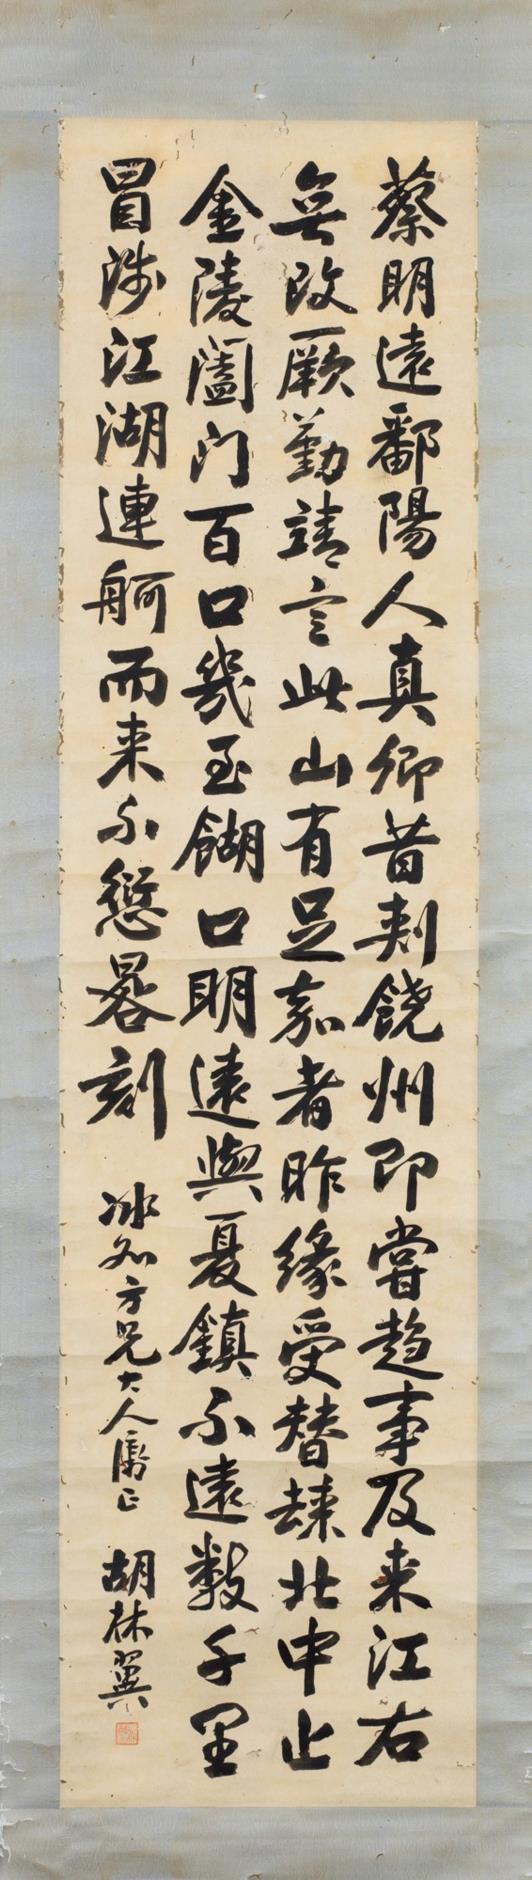 蔡明遠鄱陽人真卿昔刺饒州即嘗趨事及来江右
無改厥勤靖言此山有足嘉者昨緣受替歸北中止
金陵闔门百口幾至餬口明遠與夏鎮不遠數千里
冒涉江湖連舸而来不愆晷刻
冰如方兄大人屬正 胡林翼